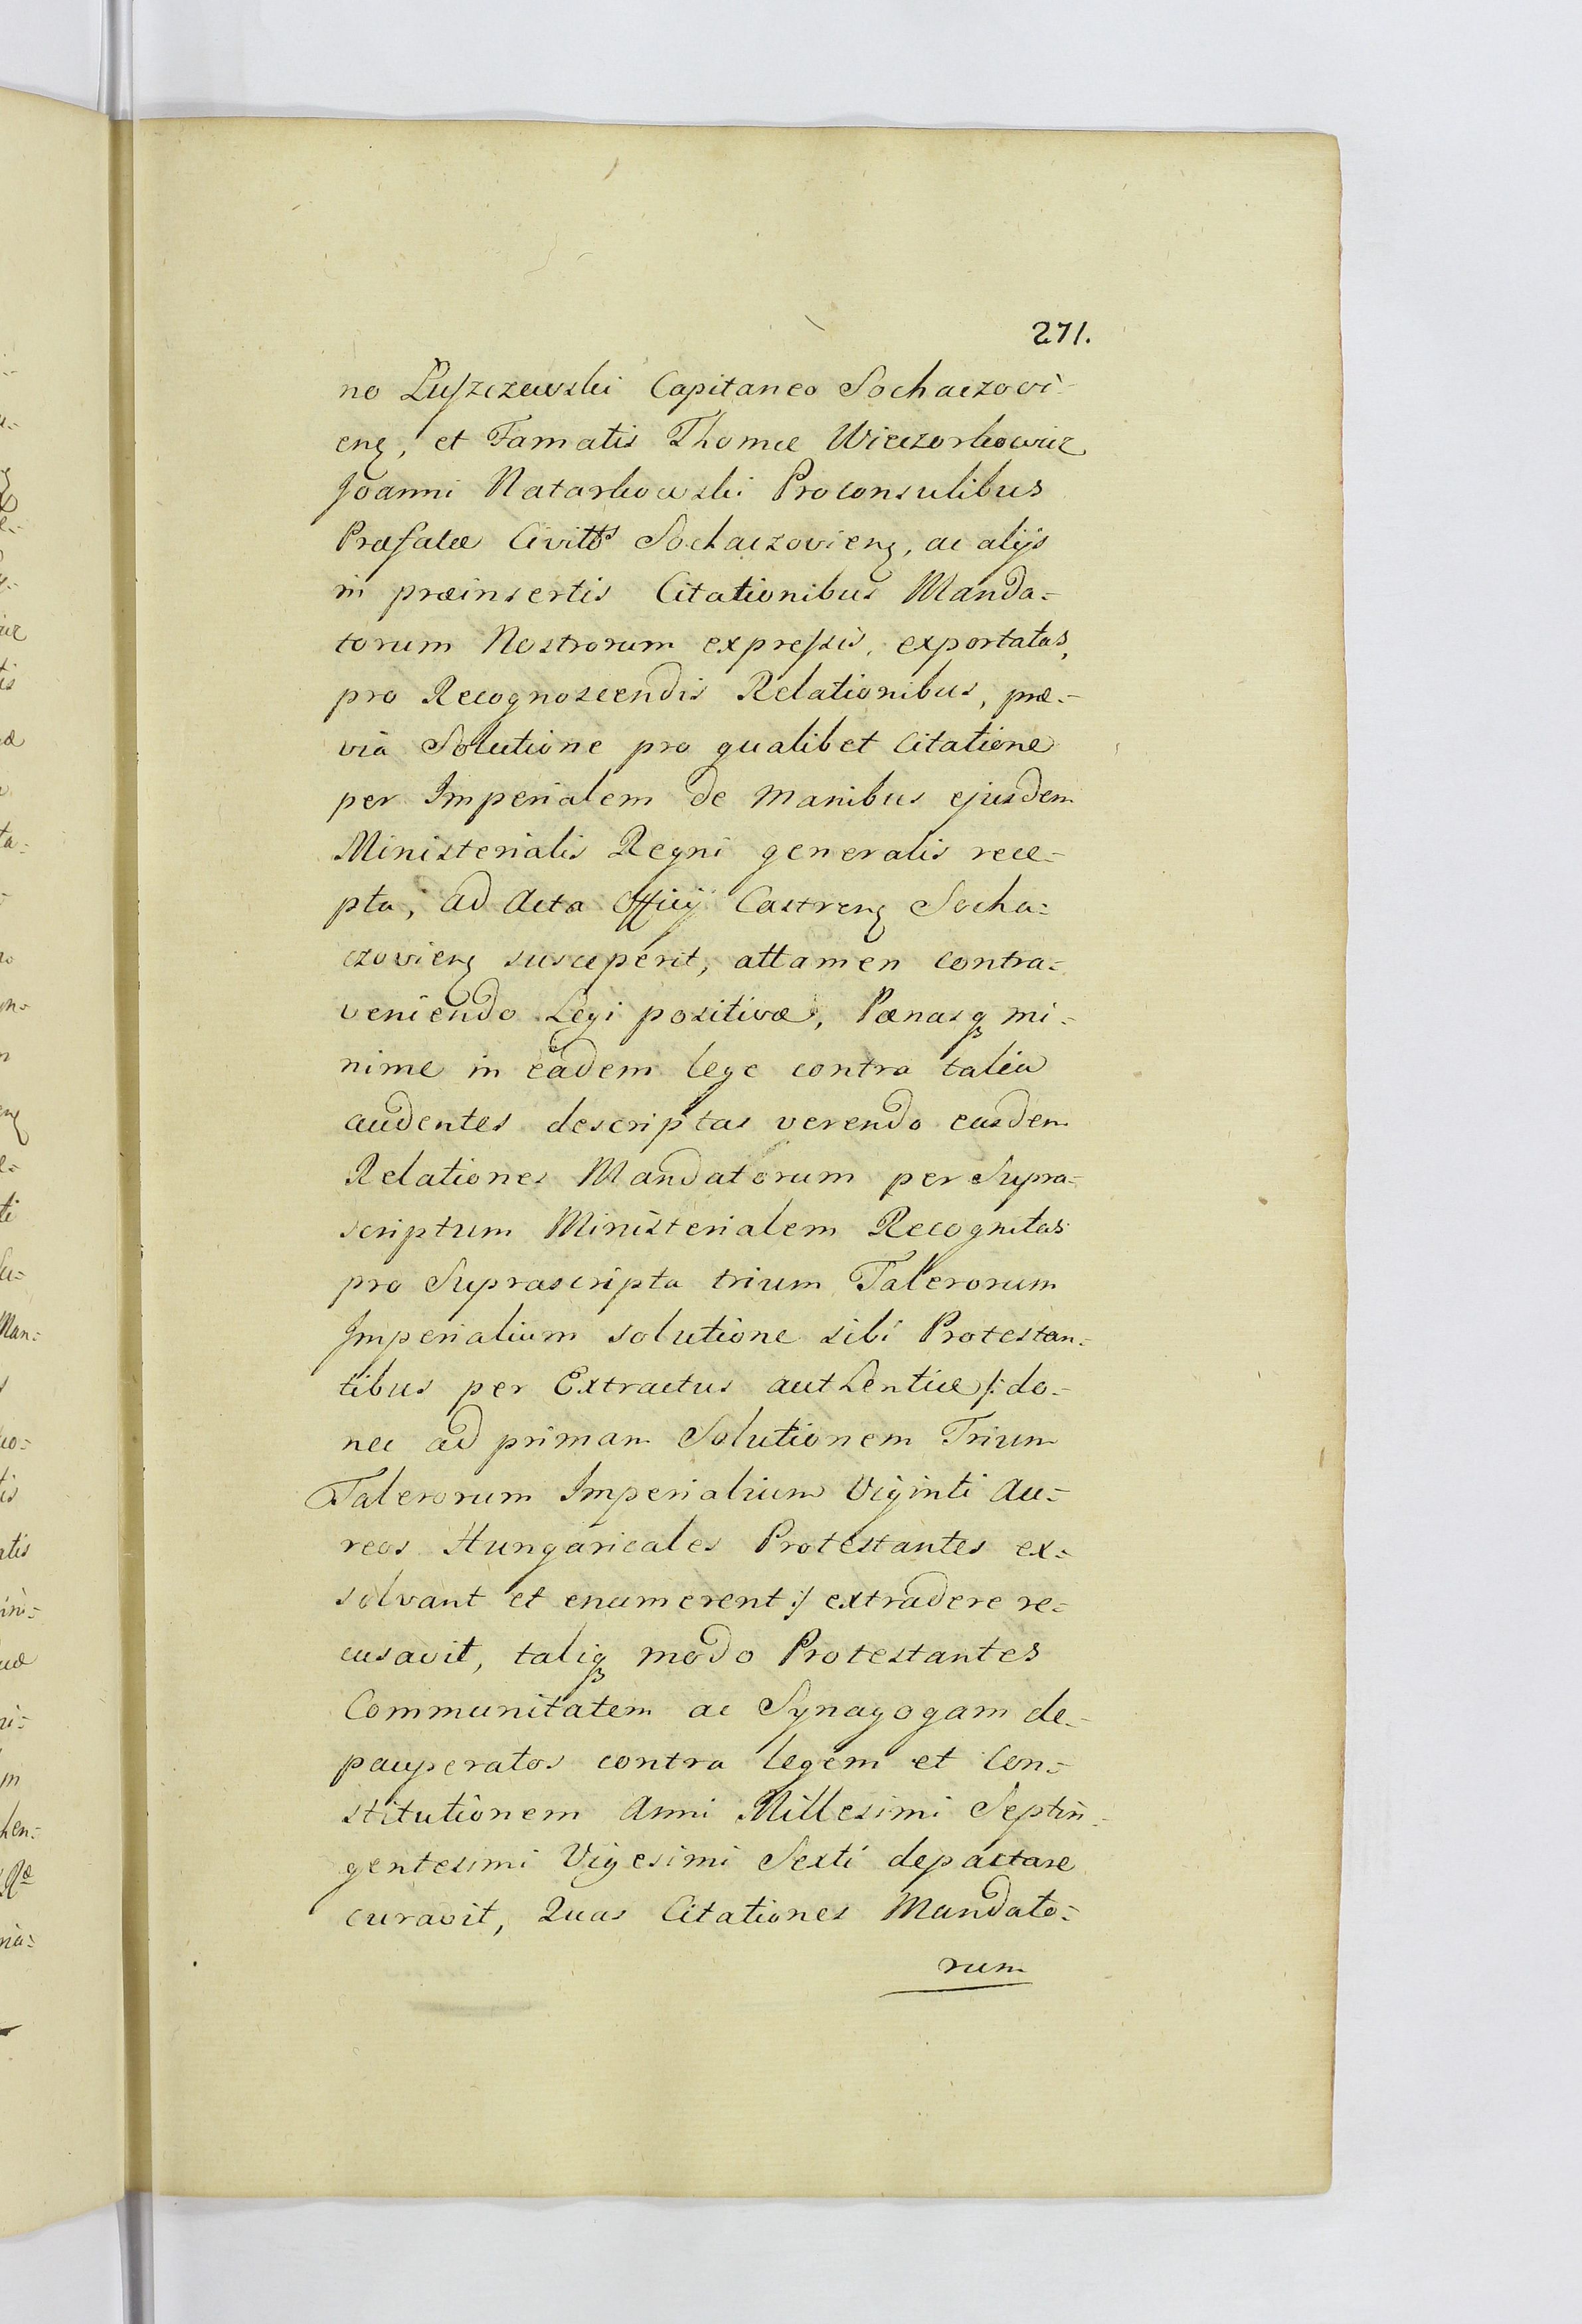 271.
no Luszczewski Capitaneo Sochaczovi-
enȝ, et Famatis Thomæ Wieczorkowicz
Joanni Natarkowski Proconsulibus
Præfatæ Civitts Sochaczovienȝ, ac alijs
in præinsertis Citationibus Manda=
torum Nostrorum expressis, exportatas,
pro Recognoscendis Relationibus, præ=
via Solutione pro qualibet Citatione
per Imperialem de manibus ejusdem
Ministerialis Regni generalis rece=
pta, ad Acta Officij Castrenȝ Socha=
czovienȝ susceperit, attamen contra=
veniendo Legi positivæ, Pœnasqȝ mi=
nime in eadem lege contra talia
audentes descriptas verendo easdem
Relationes Mandatorum per Supra=
scriptum Ministerialem Recognitas
pro Suprascripta trium Talerorum
Imperialium solutione sibi Protestan=
tibus per Extractus authenticæ /: do=
nec ad primam Solutionem Trium
Talerorum Imperialium Viginti Au=
reos Hungaricales Protestantes ex=
solvant et enumerent :/ extradere re=
cusavit, taliqȝ modo Protestantes
Communitatem ac Synagogam de=
pauperatos contra legem et Con=
stitutionem Anni Millesimi Septin=
gentesimi Vigesimi Sexti depactare
curavit, Quas Citationes Mandato=
rum